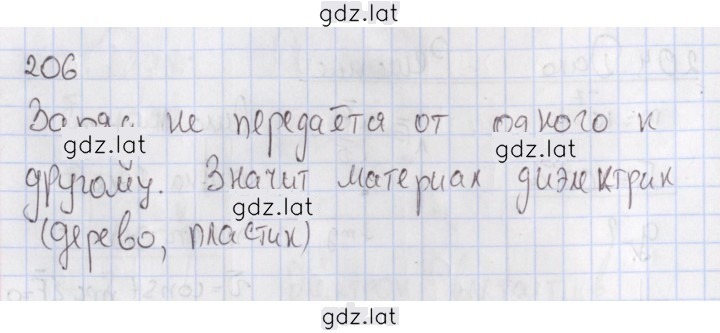 gdz.lat
206
не передаётся от к
gdz.lat
gdz.lat
другому. Значит материал диэлектрик
gdz.lat
(дерево, пластик)
gdz.lat